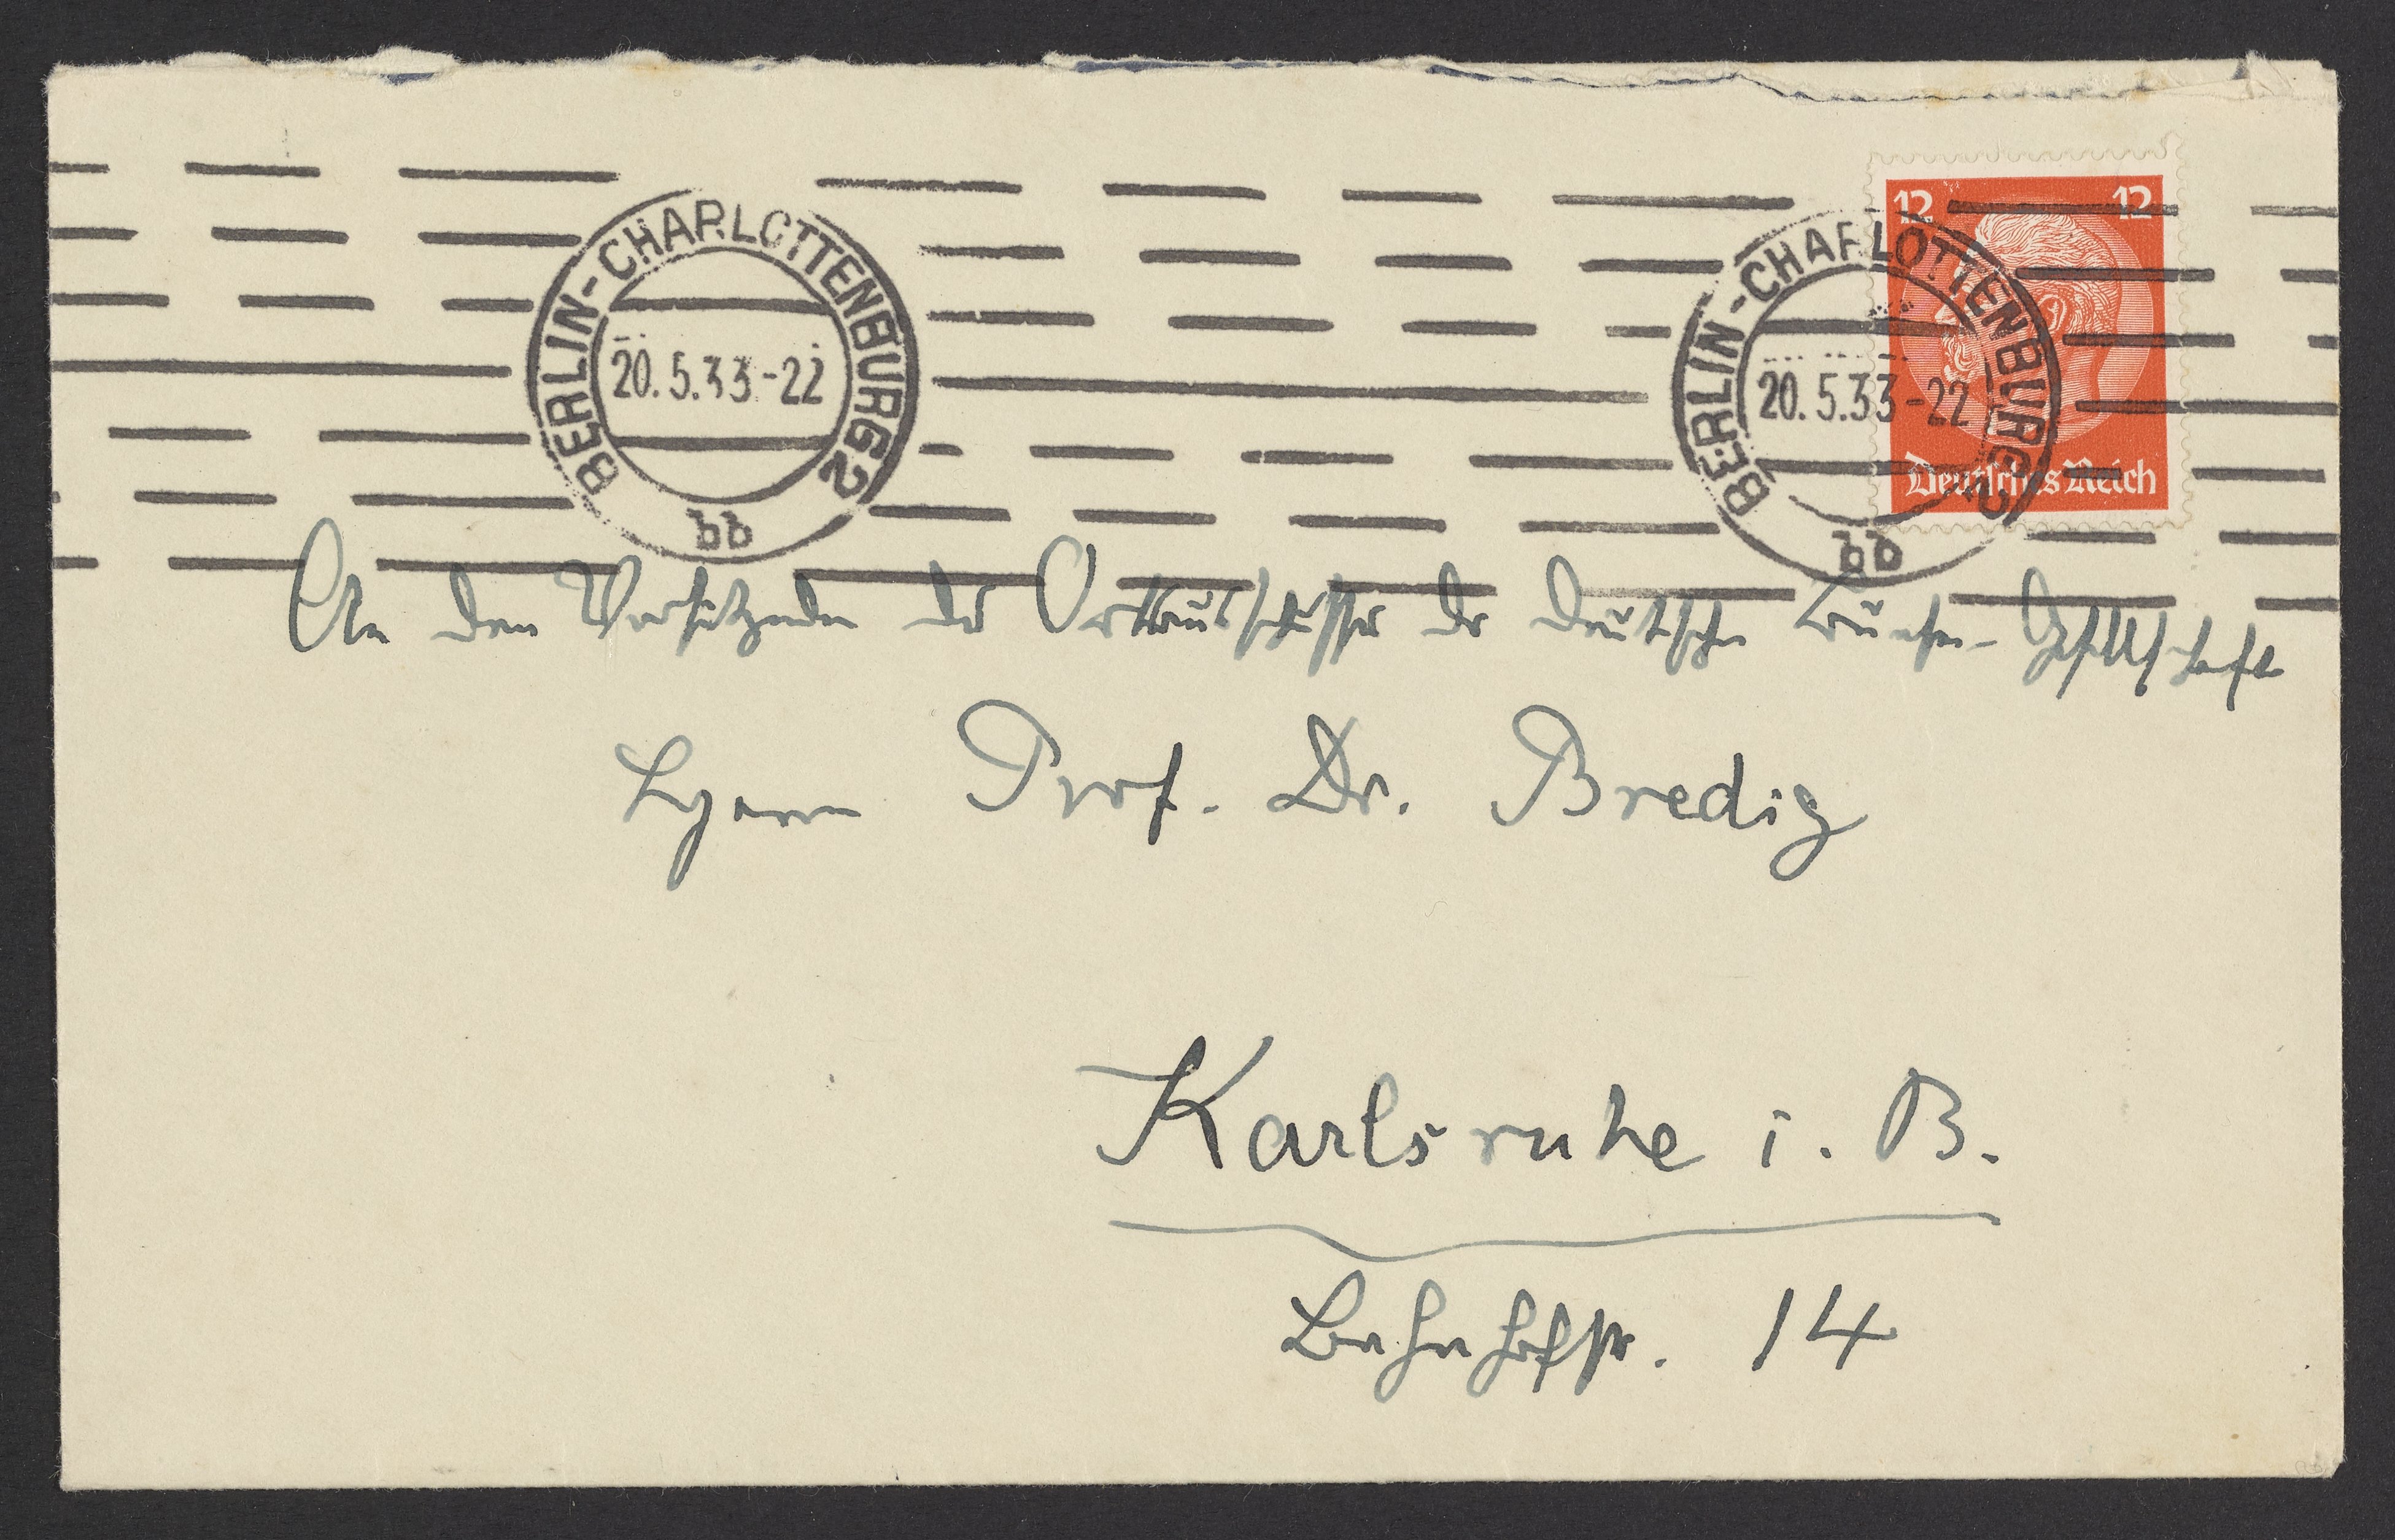 12 12
BERLIN-CHARLOTTENBURG 2
20.5.33-22
bb
BERLIN-CHARLOTTENBURG 2
20.5.33-22
bb
Deutsches Reich
An den Vorsitzenden des Ortsausschusses der Deutschen Bunsen-Gesellschaft
Herrn Prof. Dr. Bredig
Karlsruhe i. B.
Bahnhofstr. 14